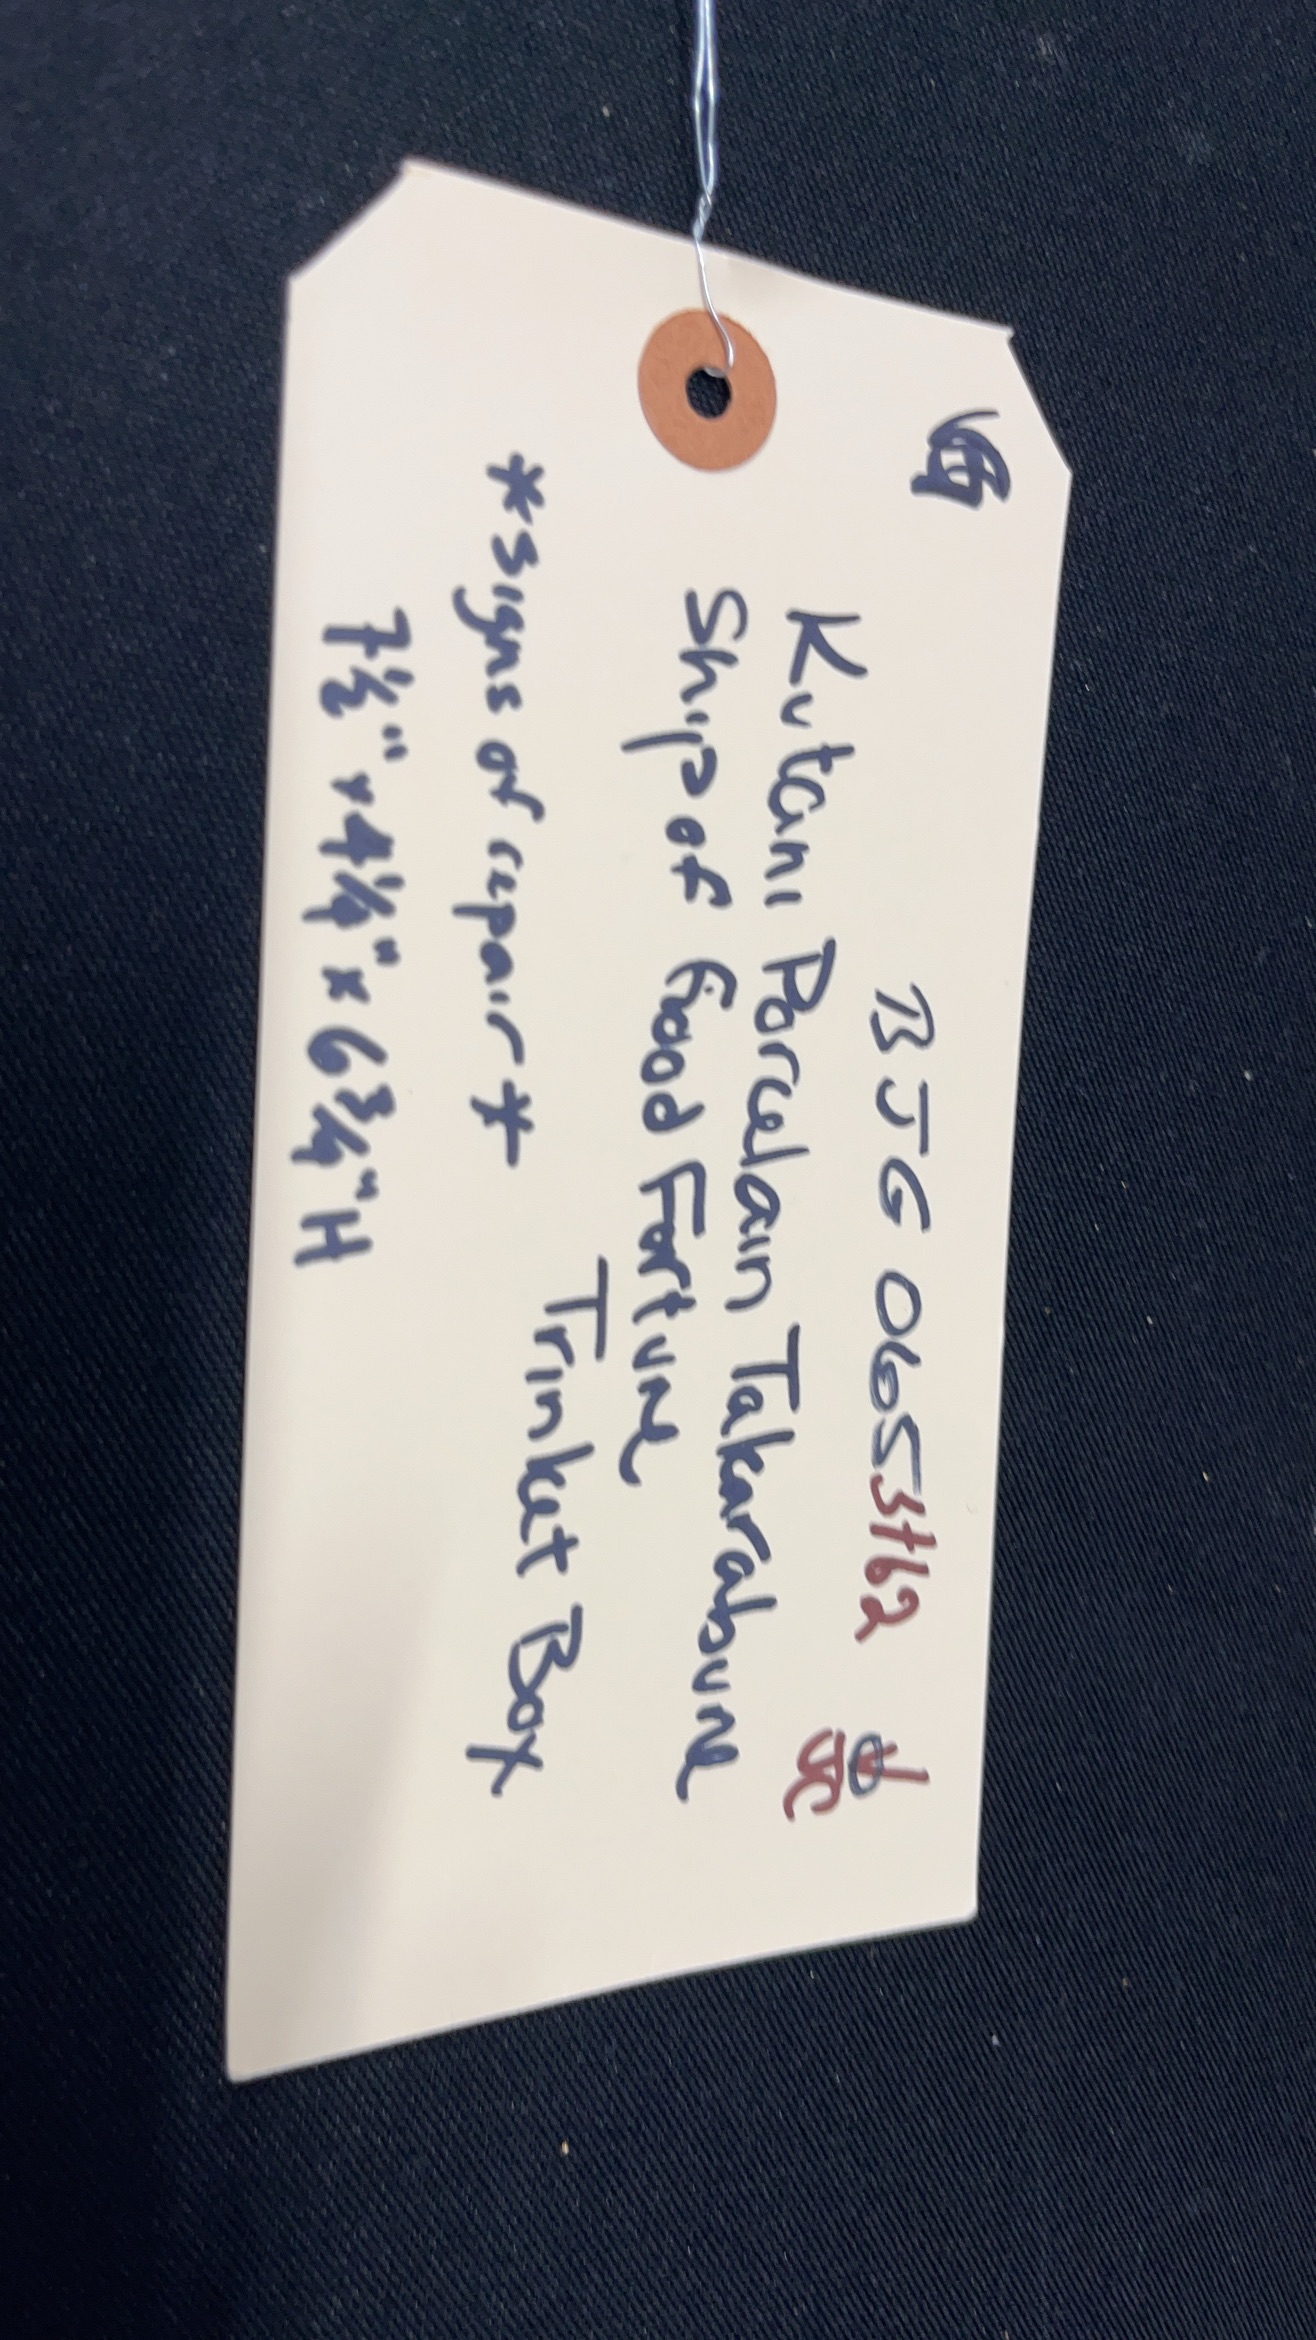 BJG 0653162
JC
Kutani Porcelain Takarabune
Ship of Good Fortune
Trinket Box
*signs of repair*
7½" x 4¼" x 6¾" H